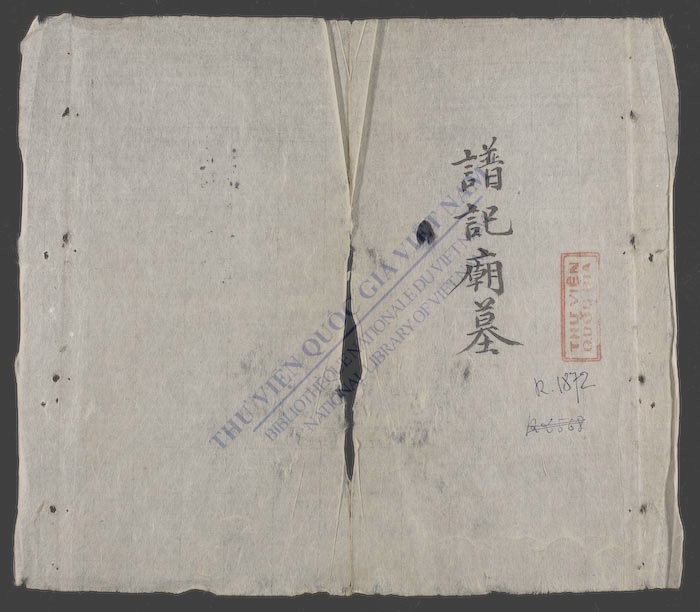 譜記廟墓
THƯ VIỆN
QUỐC GIA
R.1872
THƯ VIỆN QUỐC GIA VIỆT NAM
BIBLIOTHÈQUE NATIONALE DU VIETNAM
NATIONAL LIBRARY OF VIETNAM